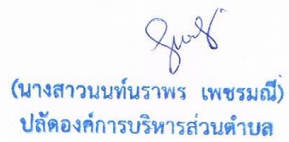 (นางสาวนนท์นราพร เพชรมณี)
ปลัดองค์การบริหารส่วนตำบล